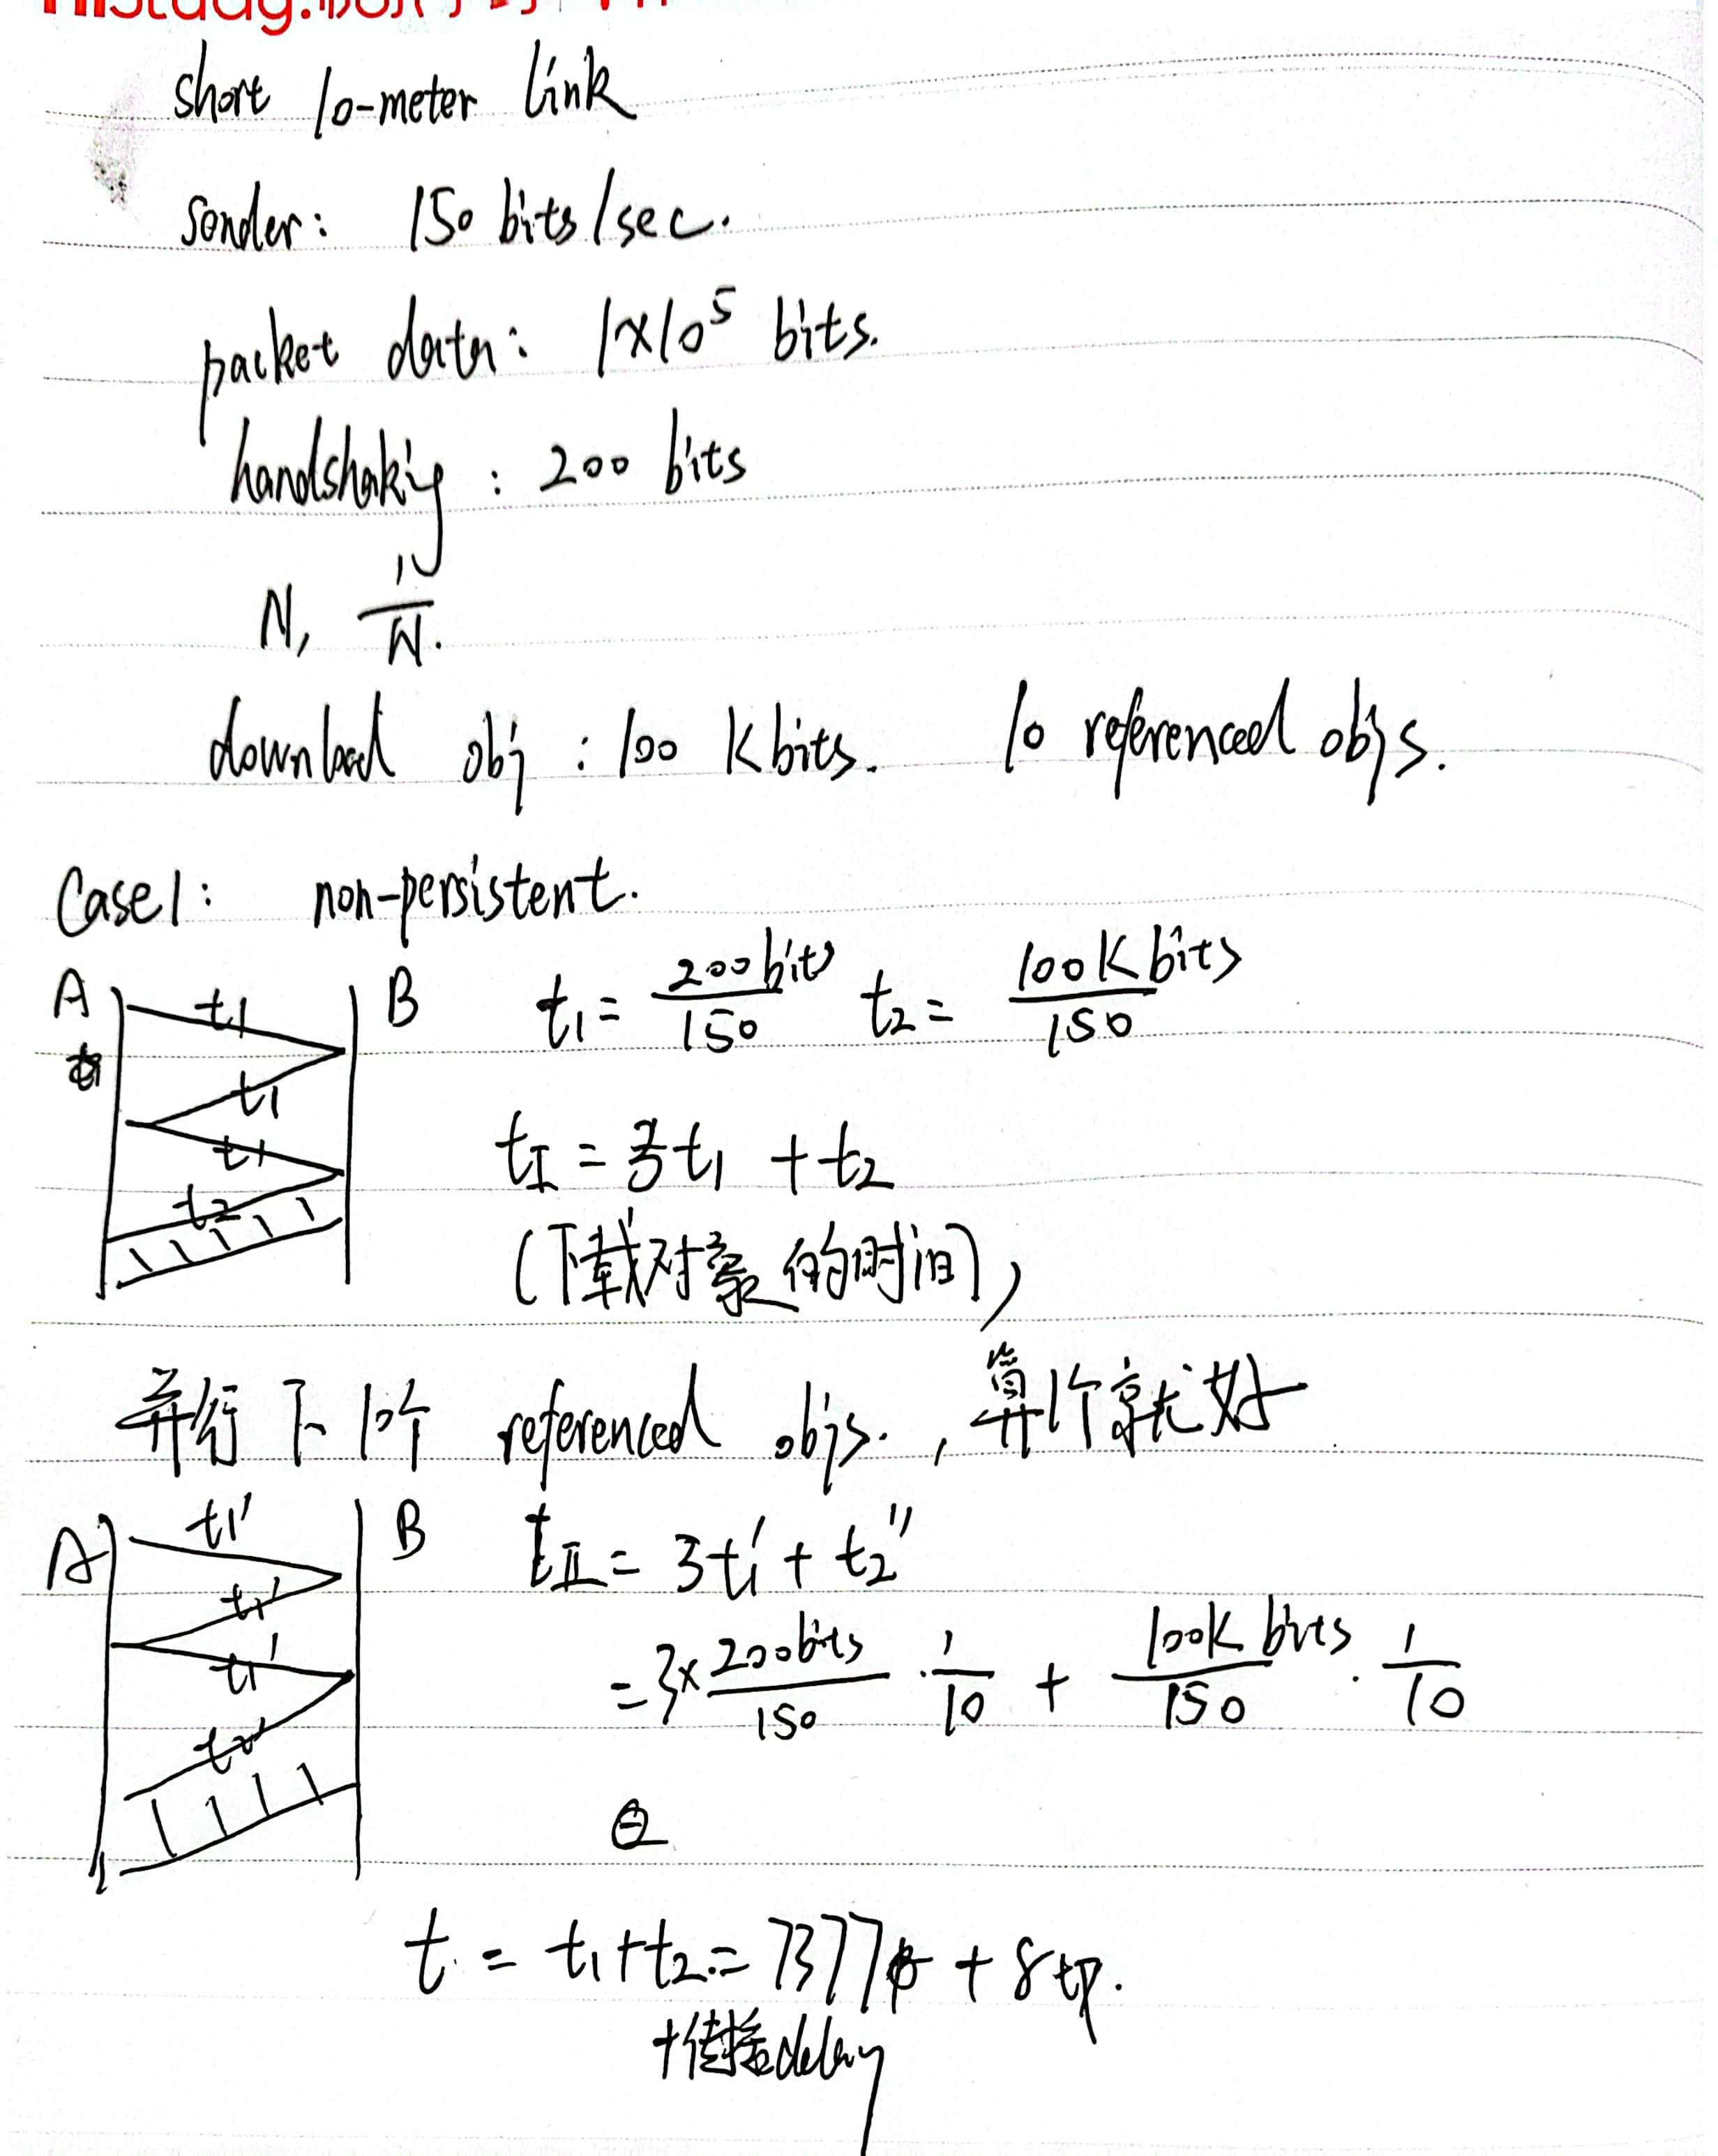 short 10-meter link
sender: 150 bits/sec.
packet data: 1×10⁵ bits.
handshaking: 200 bits
N, 1/N.
download obj: 100 Kbits. 10 referenced objs.
Case1: non-persistent.
A t1 B t1 = 200bits/150 t2 = 100K bits/150
t1
t1 tI = 3t1 + t2
t2
(下载对象的时间),
并行下10个 referenced objs., 算1个就好
A t1' B tII = 3t1' + t2''
t1'
t1' = 3×200bits/150 · 1/10 + 100K bits/150 · 1/10
t2'
t = t1+t2 = 7377 + 8tp.
+传播delay